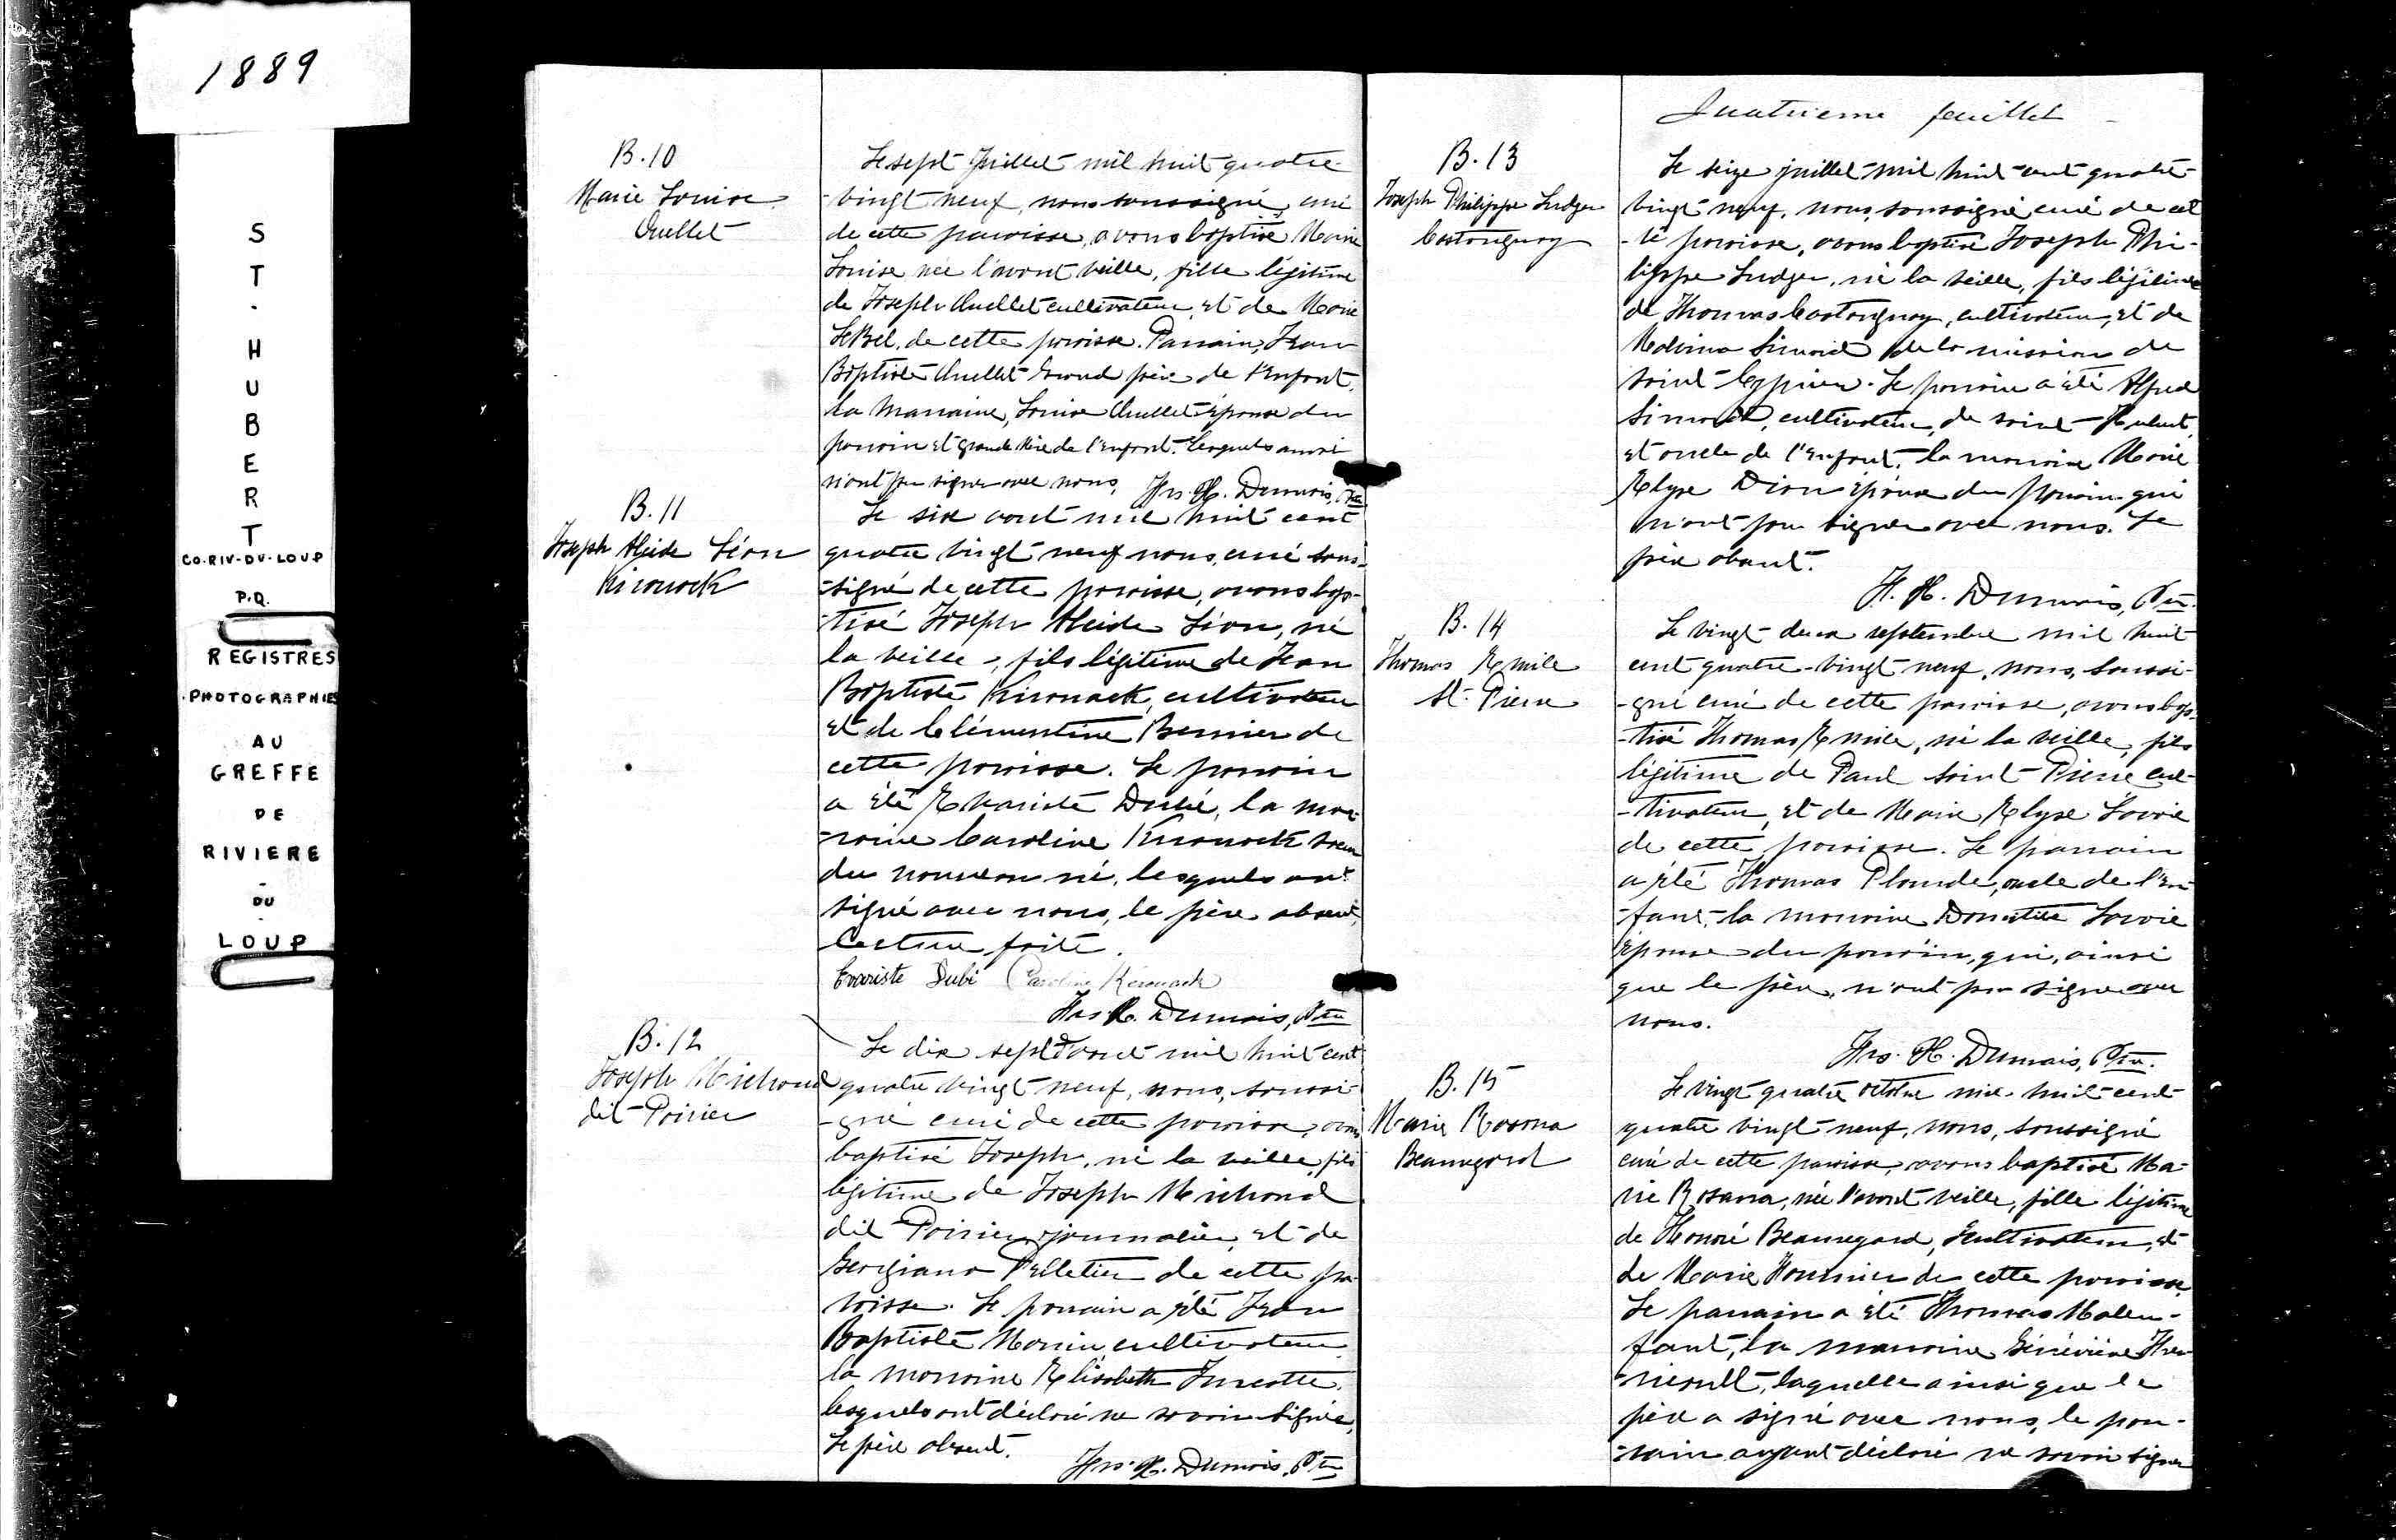 1889
ST. HUBERT
CO. RIV-DU-LOUP
P.Q.
REGISTRES
PHOTOGRAPHIES
AU
GREFFE
DE
RIVIERE
-
DU
-
LOUP
B.10
Marie Louise
Ouellet
Le sept Juillet mil huit quatre
-vingt neuf, nous soussigné, curé
de cette paroisse, avons baptisé Marie
Louise née l'avant veille, fille légitime
de Joseph Ouellet cultivateur, et de Marie
LeBel, de cette paroisse. Parrain, Jean
Baptiste Ouellet Grand père de l'enfant.
La Marraine, Louise Ouellet épouse du
parrain et grande Mère de l'enfant. Lesquels
n'ont pu signer avec nous. Frs H. Dumais, Ptre
B.11
Joseph Alcide Léon
Kirouack
Le six août mil huit cent
quatre vingt neuf nous, curé sous-
-signé de cette paroisse, avons bap-
-tisé Joseph Alcide Léon, né
la veille, fils légitime de Jean
Baptiste Kirouack, cultivateur
et de Clémentine Bernier de
cette paroisse. Le parrain
a été Evariste Dubé, la mar-
-raine Caroline Kirouack soeur
du nouveau né, lesquels ont
signé avec nous, le père absent,
Lecture faite.
Evariste Dubé Caroline Kérouack
Frs H. Dumais, Ptre
B.12
Joseph Michaud
dit Poirier
Le dix sept d'août mil huit cent
quatre vingt neuf, nous, soussi-
-gné curé de cette paroisse, avons
baptisé Joseph, né la veille, fils
légitime de Joseph Michaud
dit Poirier journalier, et de
Georgiana Pelletier de cette pa-
roisse. Le parrain a été Jean
Baptiste Morin, cultivateur
la marraine Elisabeth Turcotte.
lesquels ont déclaré ne savoir signer,
Le père absent.
Frs. H. Dumais, Ptre
Quatrieme feuillet
B.13
Joseph Philippe Ludger
Castonguay
Le seize juillet mil huit cent quatre-
vingt neuf, nous, soussigné curé de cet
-te paroisse, avons baptisé Joseph Phi-
lippe Ludger, né la veille, fils légitime
de Thomas Castonguay, cultivateur, et de
Simard de la mission de
Saint-Cyprien. Le parrain a été Alfred
Simard, cultivateur, de saint-Hubert,
et oncle de l'enfant, la marraine Marie
Elyse Dion épouse du parrain qui
n'ont pu signer avec nous. Le
père absent.
F. H. Dumais, Ptre.
B.14
Thomas Emile
St. Pierre
Le vingt-deux septembre mil huit
cent quatre-vingt neuf, nous, soussi-
-gné curé de cette paroisse, avons bap-
-tisé Thomas Emile, né la veille, fils
légitime de Paul saint-Pierre cul-
-tivateur, et de Marie Elyse Savoie
de cette paroisse. Le parrain
a été Thomas Plourde, oncle de l'en-
-fant, la marraine Donatile Savoie
épouse du parrain, qui, ainsi
que le père, n'ont pu signer avec
nous.
Frs. H. Dumais, Ptre.
B.15
Marie Rosana
Beauregard
Le vingt quatre octobre mil huit cent
quatre vingt neuf, nous, soussigné
curé de cette paroisse, avons baptisé Ma-
rie Rosana, née l'avant veille, fille légitime
de Honoré Beauregard, cultivateur, et
de Marie Fournier de cette paroisse.
Le parrain a été Thomas Malen-
fant, la marraine Géneviève
laquelle ainsi que le
père a signé avec nous, le par-
-rain ayant déclaré ne savoir signer